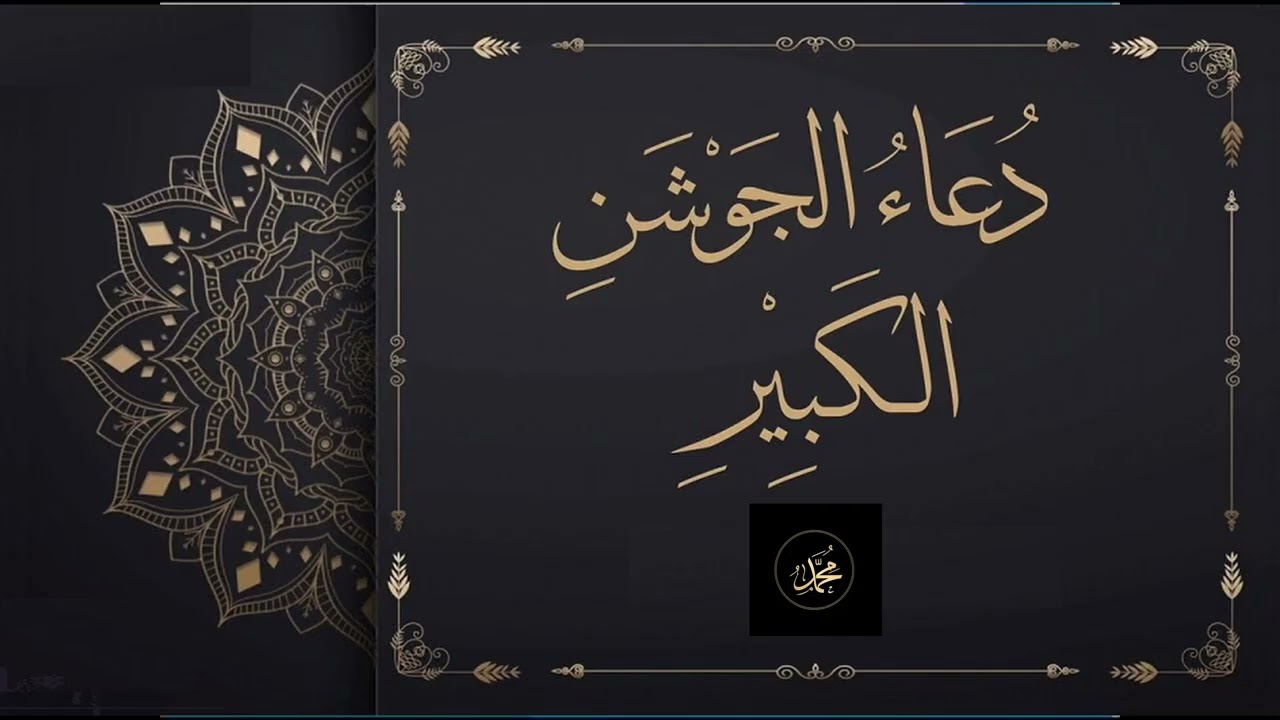 دُعَاءُ الجَوْشَنِ
الكَبِيِرِ
مُحَمَّد